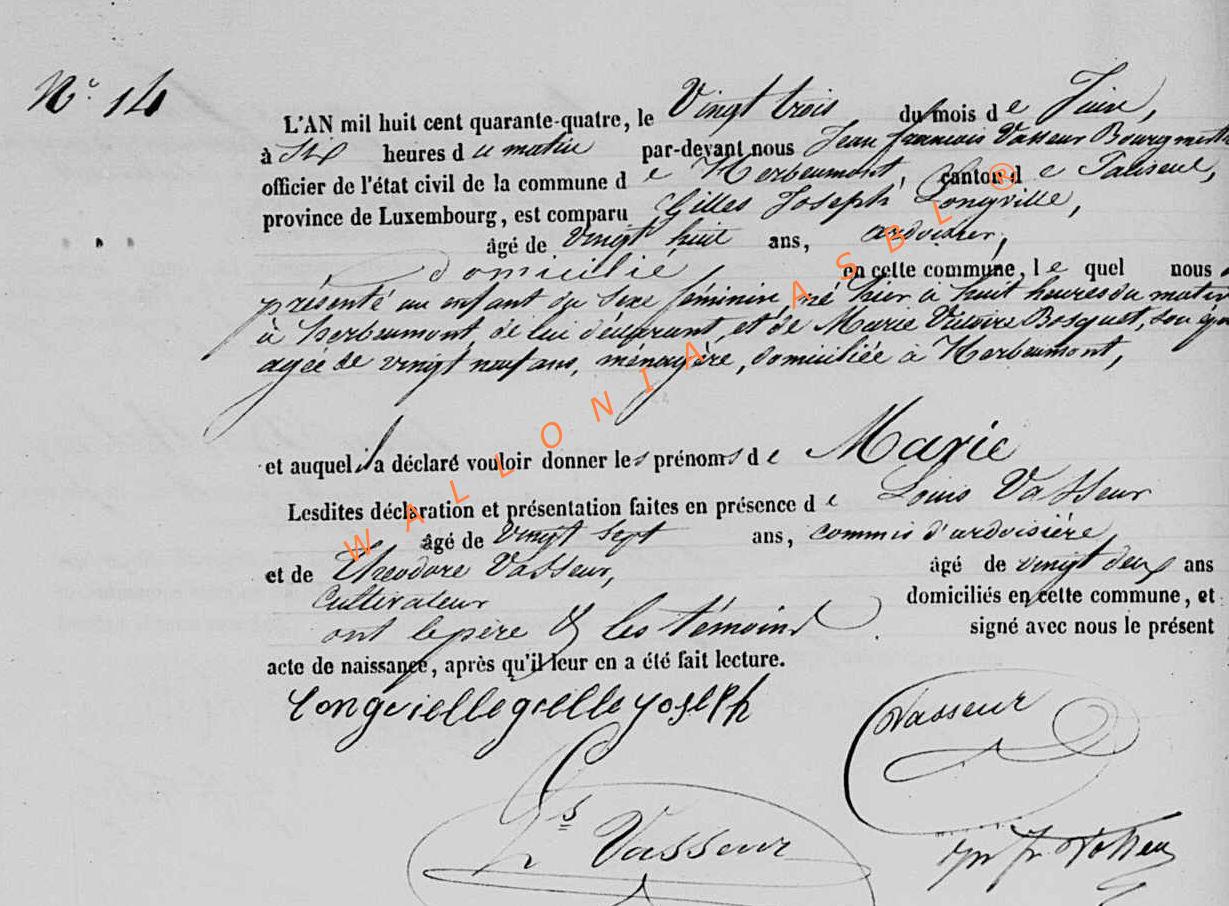 N° 14
L'AN mil huit cent quarante-quatre, le Vingt trois du mois de Juin,
à Six heures du matin par-devant nous Jean francois Vasseur Bourgmestre
officier de l'état civil de la commune de Herbeumont, canton de Paliseul,
province de Luxembourg, est comparu Gilles Joseph Longville,
âgé de vingt huit ans, ardoisier,
domicilié en cette commune, lequel nous a
présenté un enfant du sexe féminin, né hier à huit heures du matin
à herbeumont, de lui déclarant, et de Marie Victoire Bosquet, son
agée de vingt neuf ans, ménagère, domiciliée à Herbeumont,
et auquel il a déclaré vouloir donner les prénoms de Marie
Lesdites déclaration et présentation faites en présence de Louis Vasseur
âgé de vingt sept ans, commis d'ardoisière,
et de Théodore Vasseur, âgé de vingt deux ans
Cultivateur domiciliés en cette commune, et
ont le père & les témoins signé avec nous le présent
acte de naissance, après qu'il leur en a été fait lecture.
Longvielle gielle yoseph
Vasseur
Ls Vasseur
WALLONIA ASBL ®